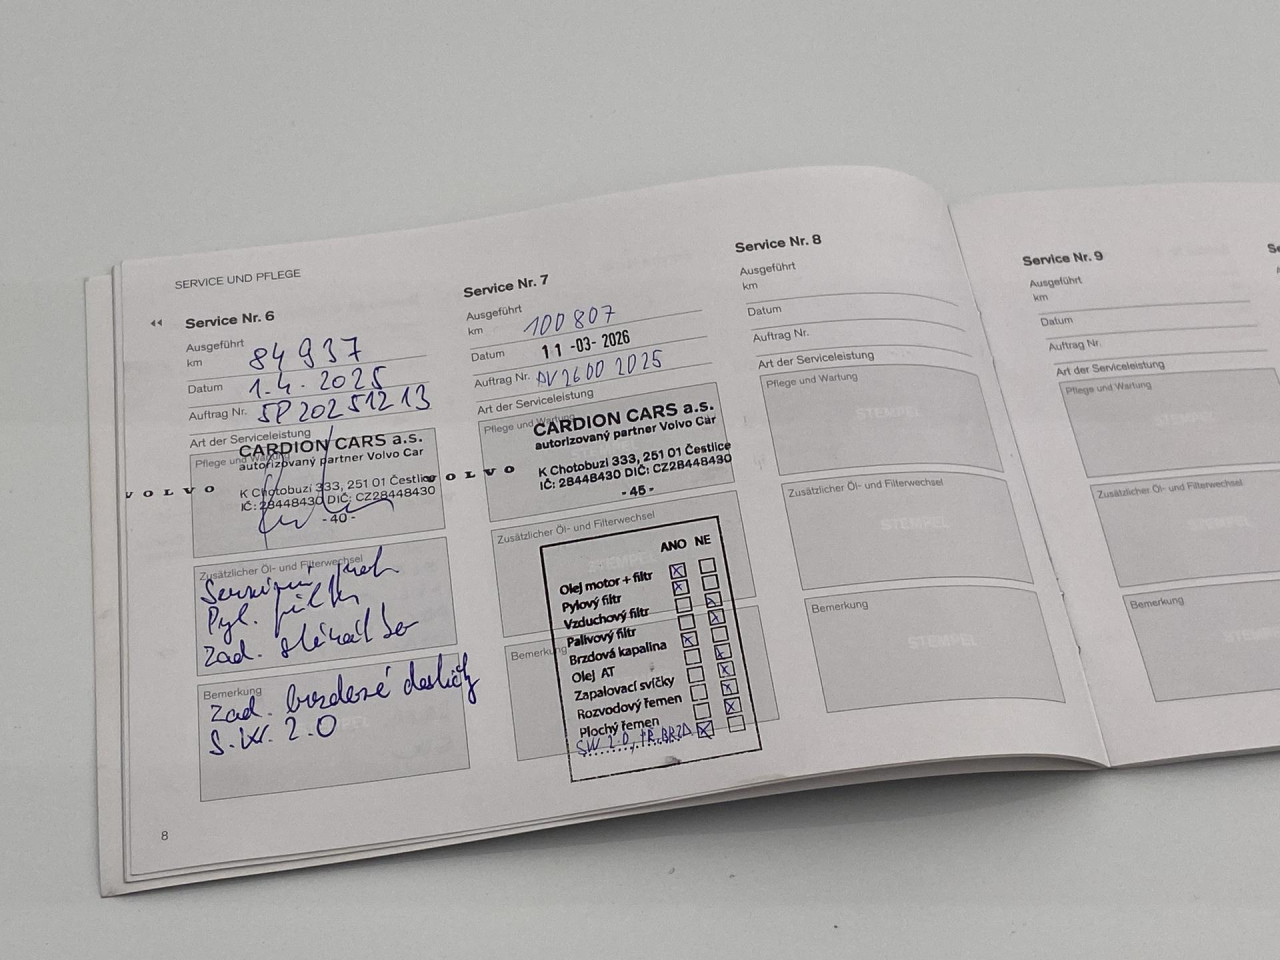 SERVICE UND PFLEGE
Service Nr. 6
Ausgeführt
km 84 937
Datum 1.4.2025
Auftrag Nr. SP20251213
Art der Serviceleistung
Pflege und Wartung
CARDION CARS a.s.
autorizovaný partner Volvo Car
VOLVO
K Chotobuzi 333, 251 01 Čestlice
IČ: 28448430 DIČ: CZ28448430
- 40 -
Zusätzlicher Öl- und Filterwechsel
Pyl. filtr
Zad.
Bemerkung
Zad. brzdové
S.W. 2.0
8
Service Nr. 7
Ausgeführt
km 100 807
Datum 11-03-2026
Auftrag Nr. AV26002025
Art der Serviceleistung
Pflege und Wartung
CARDION CARS a.s.
autorizovaný partner Volvo Car
VOLVO
K Chotobuzi 333, 251 01 Čestlice
IČ: 28448430 DIČ: CZ28448430
- 45 -
Zusätzlicher Öl- und Filterwechsel
Bemerkung
ANO NE
Olej motor + filtr
Pylový filtr
Vzduchový filtr
Palivový filtr
Brzdová kapalina
Olej AT
Zapalovací svíčky
Rozvodový řemen
Plochý řemen
SW 2.0,
Service Nr. 8
Ausgeführt
km
Datum
Auftrag Nr.
Art der Serviceleistung
Pflege und Wartung
STEMPEL
Zusätzlicher Öl- und Filterwechsel
STEMPEL
Bemerkung
STEMPEL
Service Nr. 9
Ausgeführt
km
Datum
Auftrag Nr.
Art der Serviceleistung
Pflege und Wartung
STEMPEL
Zusätzlicher Öl- und Filterwechsel
STEMPEL
Bemerkung